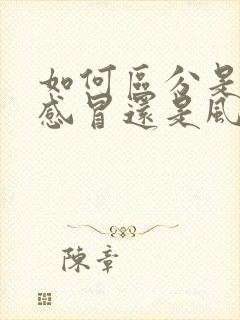 如何區分是
感冒還是風
陳章